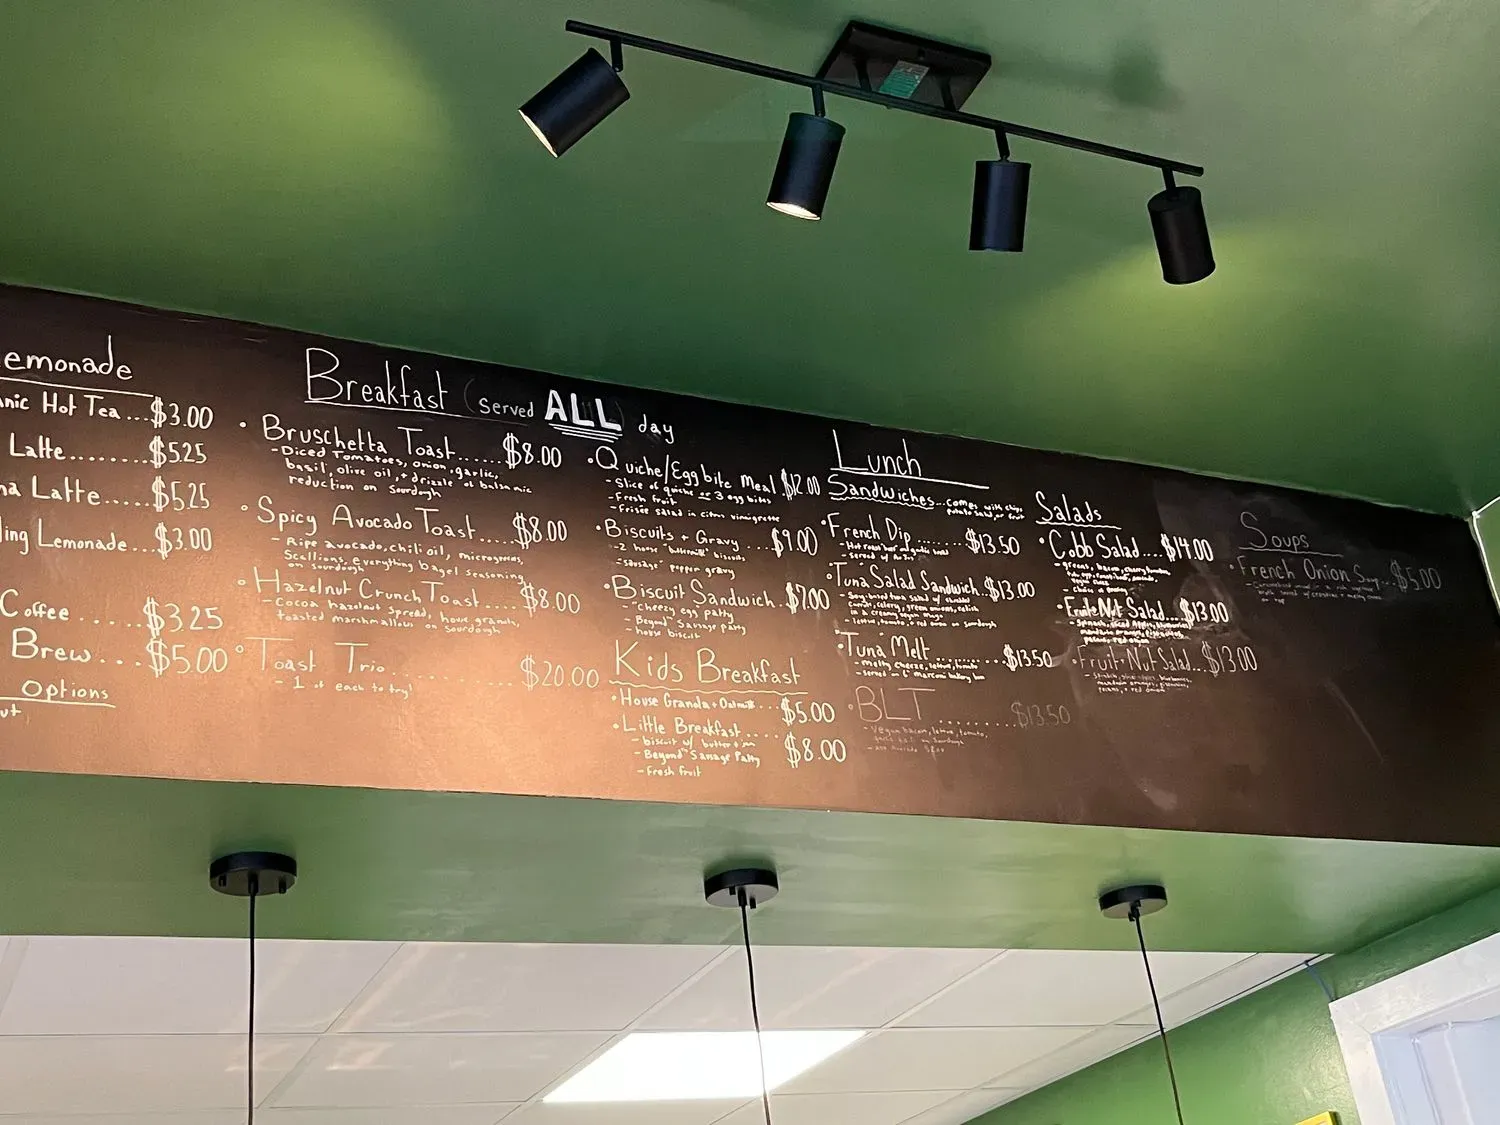 emonade
nic Hot Tea...$3.00
Latte........$5.25
a Latte.....$5.25
ling Lemonade...$3.00
Coffee ....$3.25
Brew...$5.00
Options
ut
Breakfast (Served ALL day
• Bruschetta Toast......$8.00
- Diced Tomatoes, onion, garlic,
basil, olive oil, + drizzle of balsamic
reduction on sourdough
• Spicy Avocado Toast....$8.00
- Ripe avocado, chili oil, microgreens,
Scallions, everything bagel seasoning
on sourdough
• Hazelnut Crunch Toast....$8.00
- Cocoa hazelnut spread, house granola,
toasted marshmallows on sourdough
• Toast Trio..........$20.00
- 1 of each to try!
• Quiche/Egg bite Meal $12.00
- Slice of quiche or 3 egg bites
- Fresh fruit
- Frisée salad in citrus vinaigrette
• Biscuits + Gravy....$9.00
- 2 house "buttermilk" biscuits
- "sausage" pepper gravy
• Biscuit Sandwich..$7.00
- "cheezy egg" patty
- Beyond Sausage patty
- house biscuit
Kids Breakfast
• House Granola + Oatmilk...$5.00
• Little Breakfast....$8.00
- biscuit w/ butter + jam
- Beyond Sausage Patty
- Fresh fruit
Lunch
Sandwiches...comes with chips
potato salad, or fruit
• French Dip........$13.50
• Tuna Salad Sandwich..$13.00
- lettuce, tomato, + red onion on sourdough
• Tuna Melt.........$13.50
- melty cheeze, lettuce, tomato
- served on
• BLT........$13.50
- Vegan bacon, lettuce, tomato,
on sourdough
Salads
• Cobb Salad....$14.00
• Fruit + Nut Salad...$13.00
• Fruit + Nut Salad...$13.00
Soups
• French Onion Soup...$5.00